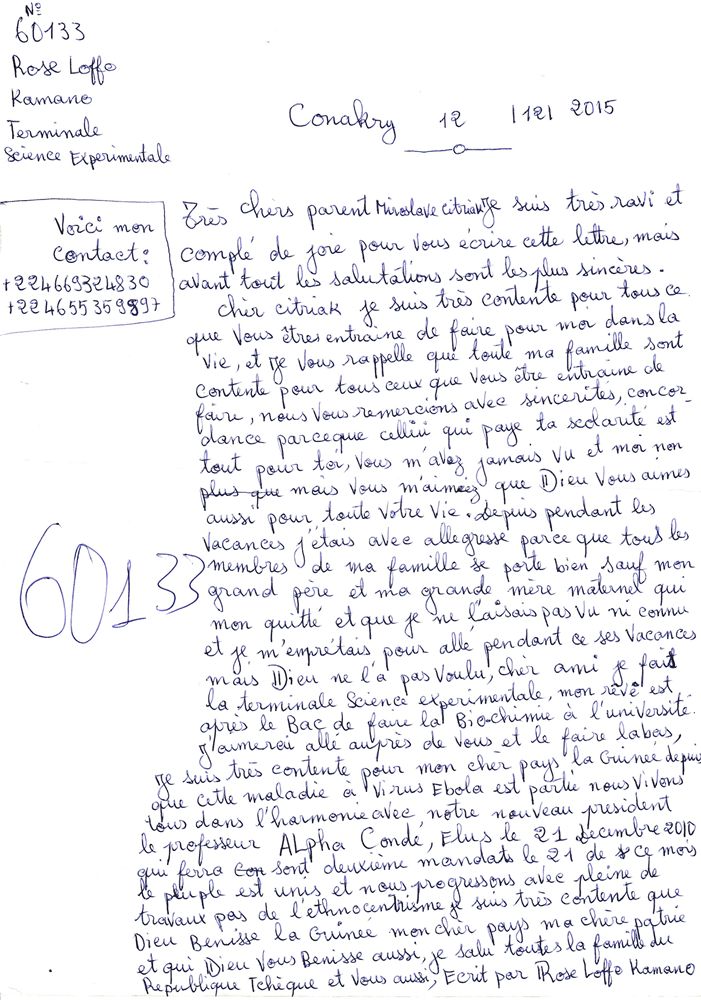 N°
60133
Rose Loffo
Kamano
Terminale
Science Experimentale
Conakry 12 |12| 2015
Voici mon
contact:
+224669324830
+224655359897
Très chers parent Miroslave citriak Je suis très ravi et
complé de joie pour vous écrire cette lettre, mais
avant tout les salutations sont les plus sincères.
Cher citriak je suis très contente pour tous ce
que vous êtres entraine de faire pour moi dans la
vie, et je vous rappelle que toute ma famille sont
contente pour tous ceux que vous être entraine de
faire, nous vous remercions avec sincerités, concor-
dance parceque cellui qui paye ta scolarité est
tout pour toi, vous m'avez jamais vu et moi non
plus que mais vous m'aimeez, que Dieu vous aumes
aussi pour toute votre vie. depuis pendant les
vacances j'étais avec allegresse parce que tous les
60133
membres de ma famille se porte bien sauf mon
grand père et ma grande mère maternel qui
mon quitté et que je ne l'aisais pas vu ni connu
et je m'emprétais pour allé pendant ce ses vacances
mais Dieu ne l'a pas voulu, cher ami je fait
la terminale Science experimentale, mon rêve est
après le Bac de faire la Bio-chimie à l'université.
J'aimerai allé auprès de vous et le faire labas,
Je suis très contente pour mon cher pays la Guinée depuis
que cette maladie à Virus Ebola est partie nous vivons
tous dans l'harmonie avec notre nouveau president
le professeur ALpha Condé, Elus le 21 decembre 2010
qui ferra sont deuxième mandats le 21 de ce mois
le peuple est unis et nous progressons avec pleine de
travaux pas de l'ethnocentrisme je suis très contente que
Dieu Benisse la Guinée mon cher pays ma chère patrie
et qui Dieu Vous Benisse aussi, je salu toutes la famille du
Republique Tchèque et vous aussi, Ecrit par Rose Loffo Kamano